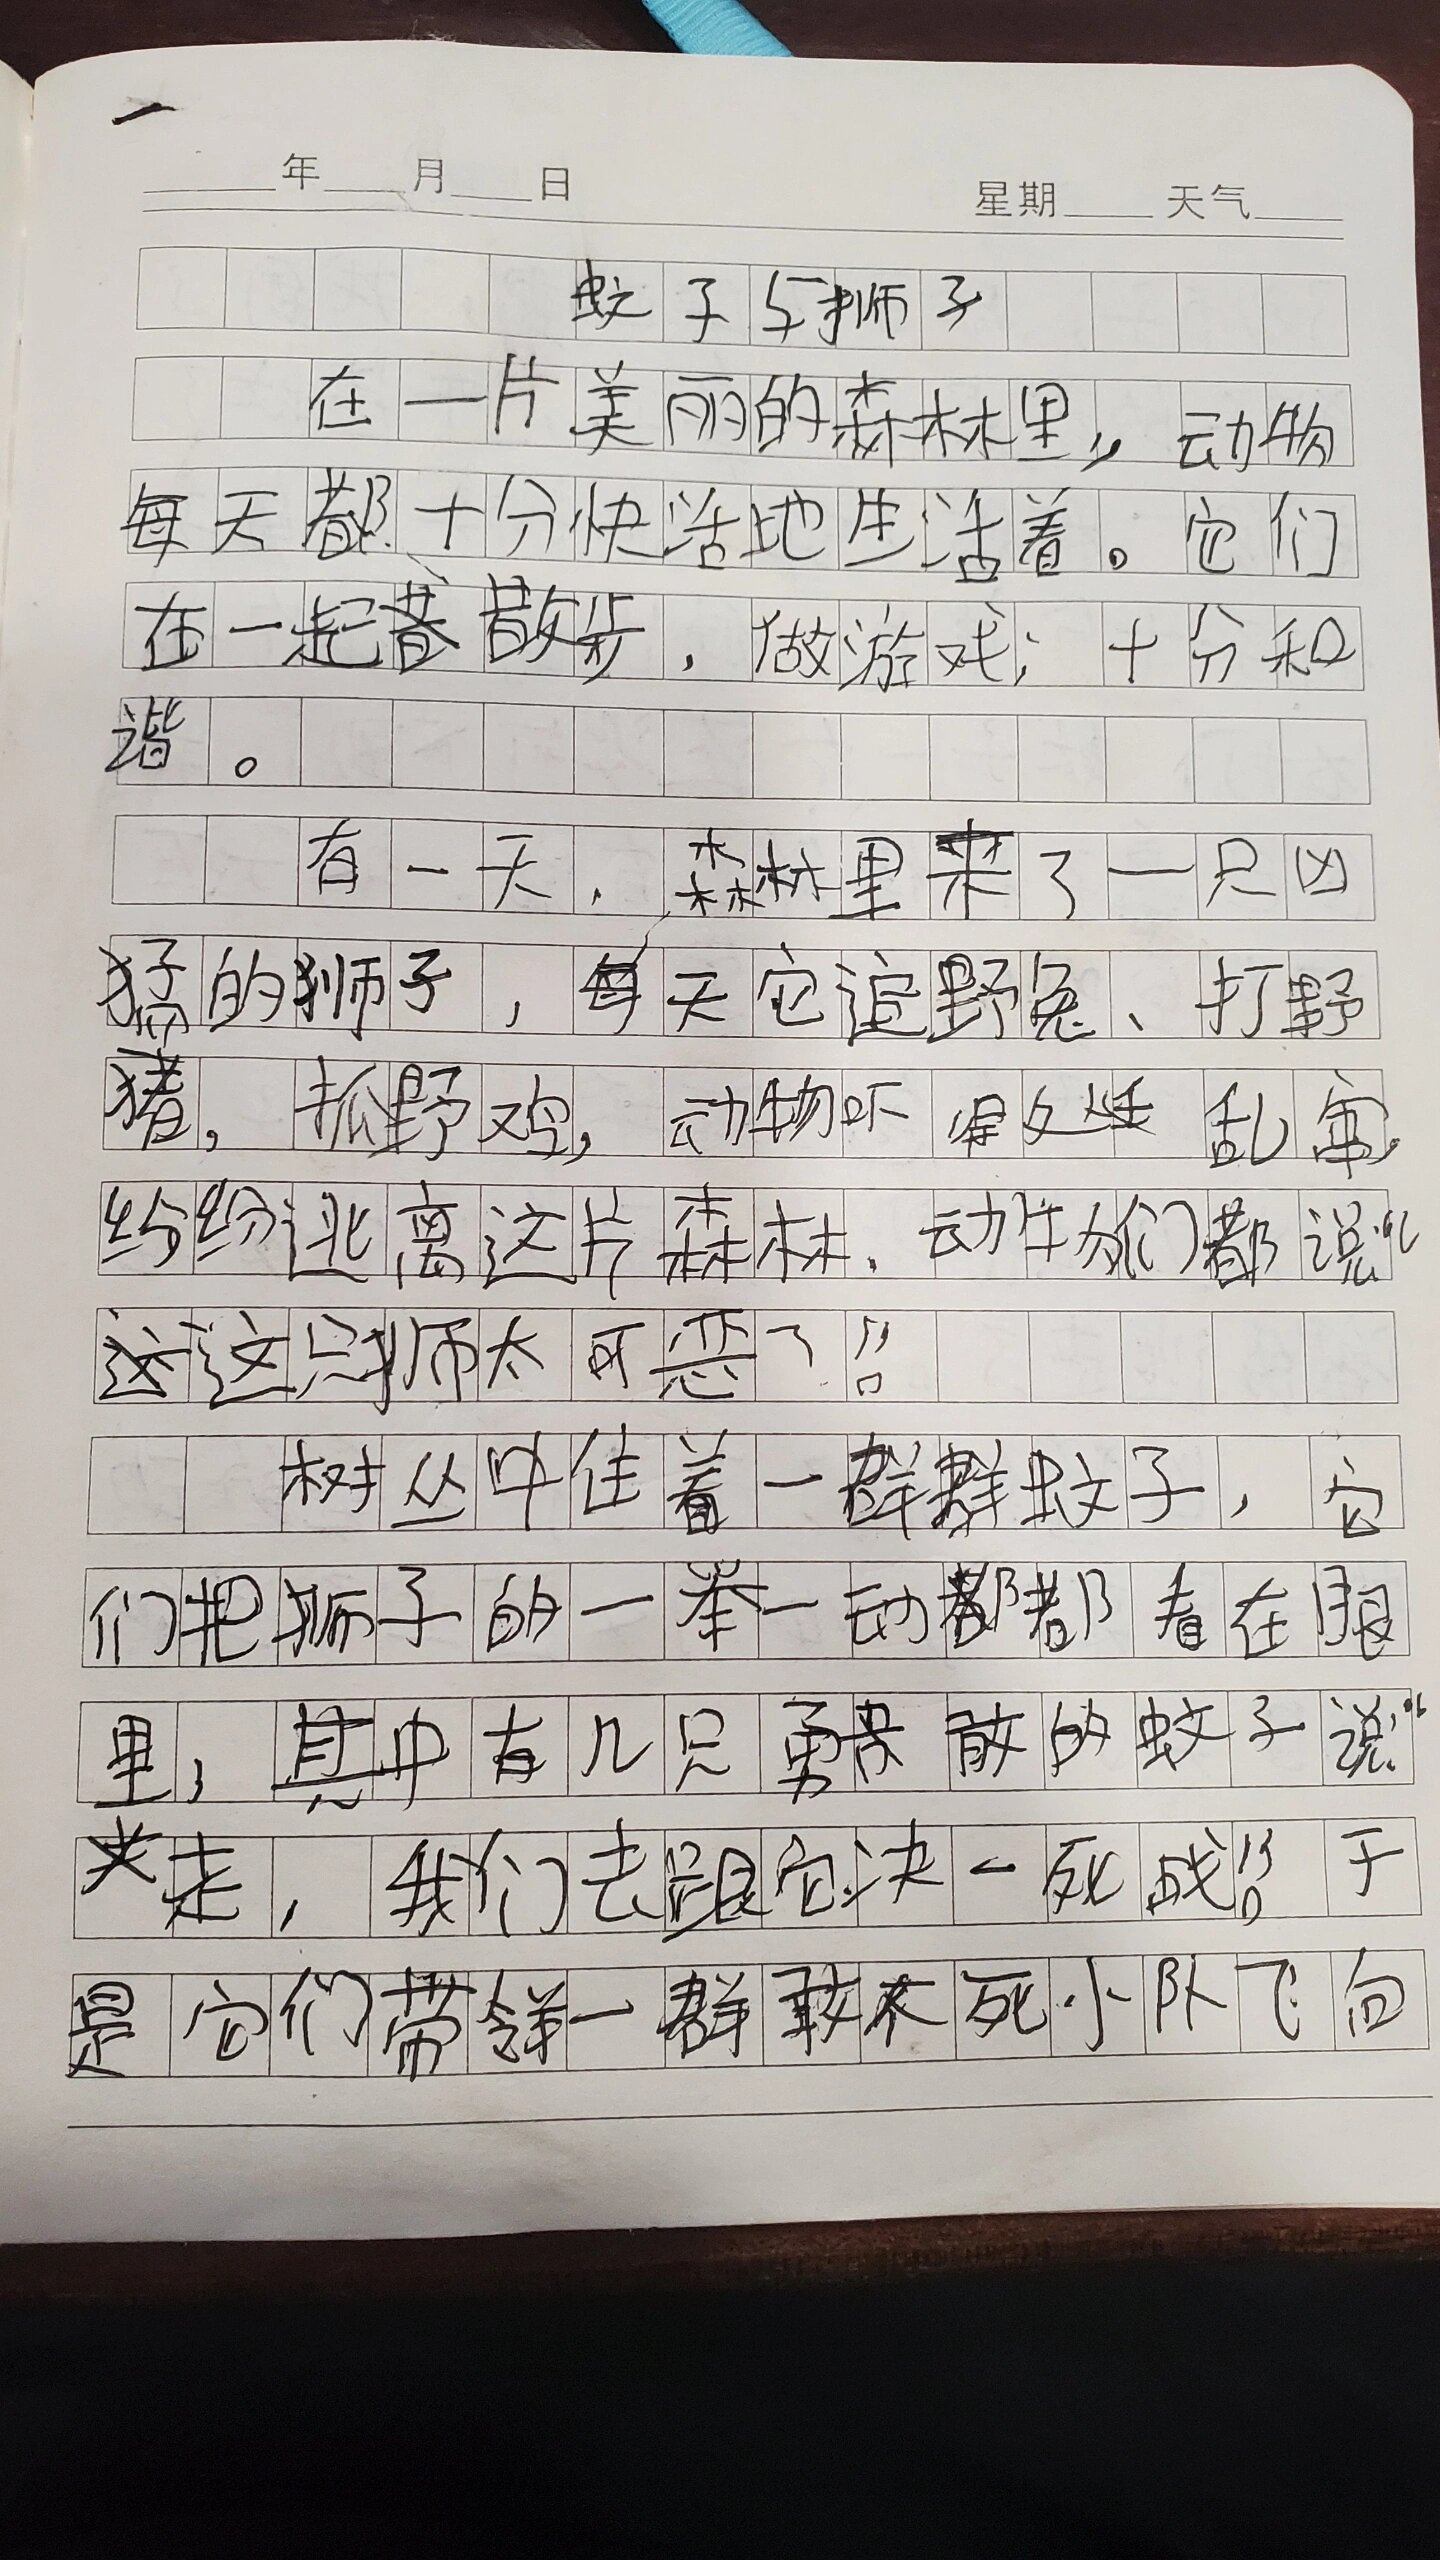 一
年 月 日 星期 天气
蚊子与狮子
在一片美丽的森林里，动物
每天都十分快活地生活着。它们
在一起散步，做游戏；十分和
谐。
有一天，森林里来了一只凶
猛的狮子，每天它追野兔、打野
猪，抓野鸡，动物吓得处处乱窜，
纷纷逃离这片森林，动物们都说：“
这只狮太可恶了。”
树丛中住着一群蚊子，它
们把狮子的一举一动都看在眼
里，其中有几只勇敢的蚊子说：“
走，我们去跟它决一死战。”于
是它们带领一群敢死小队飞向